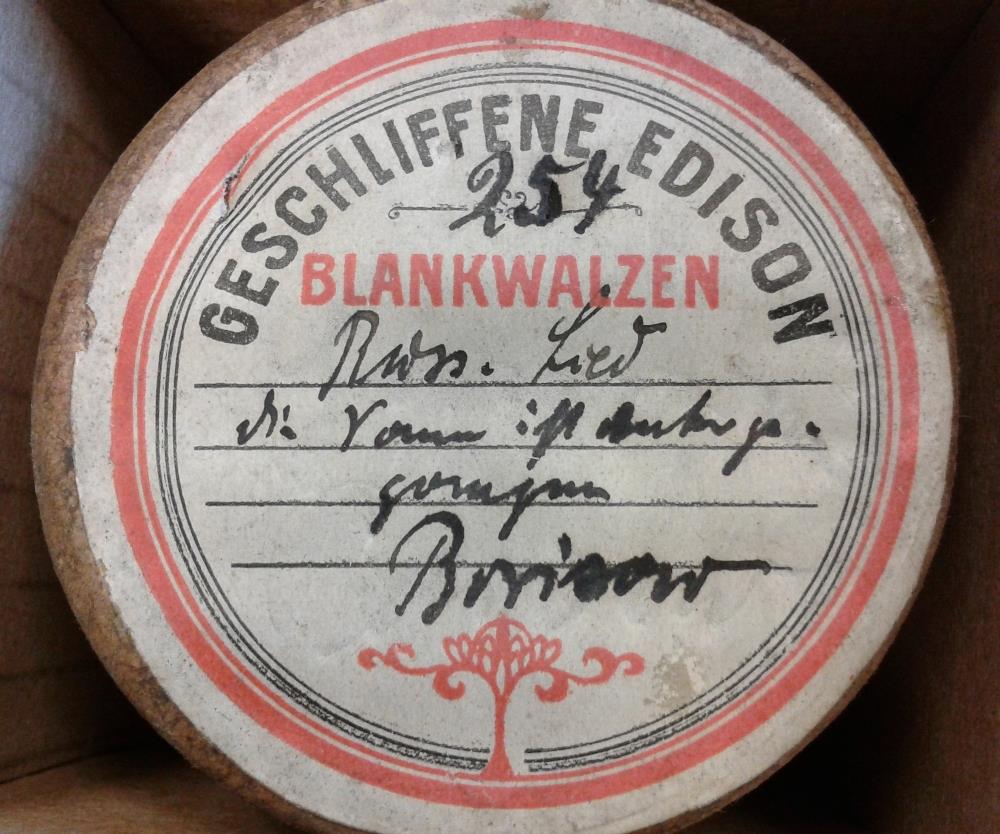 GESCHLIFFENE EDISON
254
BLANKWALZEN
Russ. Lied
die Sonne ist unterge-
gangen
Borisow